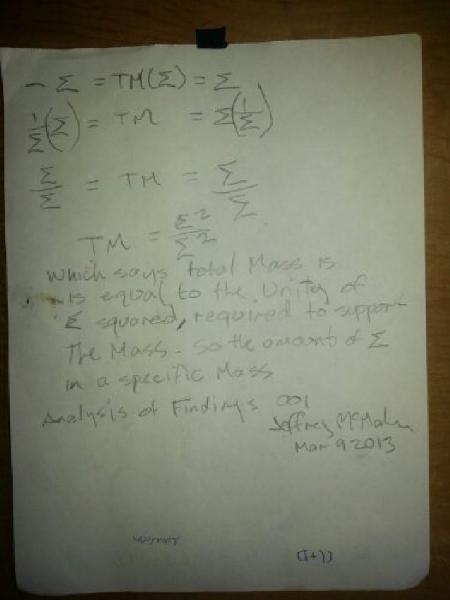 - Σ = TM(Σ) = Σ
1/Σ(Σ) = TM = Σ(1/Σ)
Σ/Σ = TM = Σ/Σ
TM = Σ²/Σ²
which says total Mass is
is equal to the Unity of
Σ squared, required to support
The Mass. So the amount of Σ
in a specific Mass
Analysis of Findings 001
Jeffrey McMahon
Mar 9 2013
(1+1)